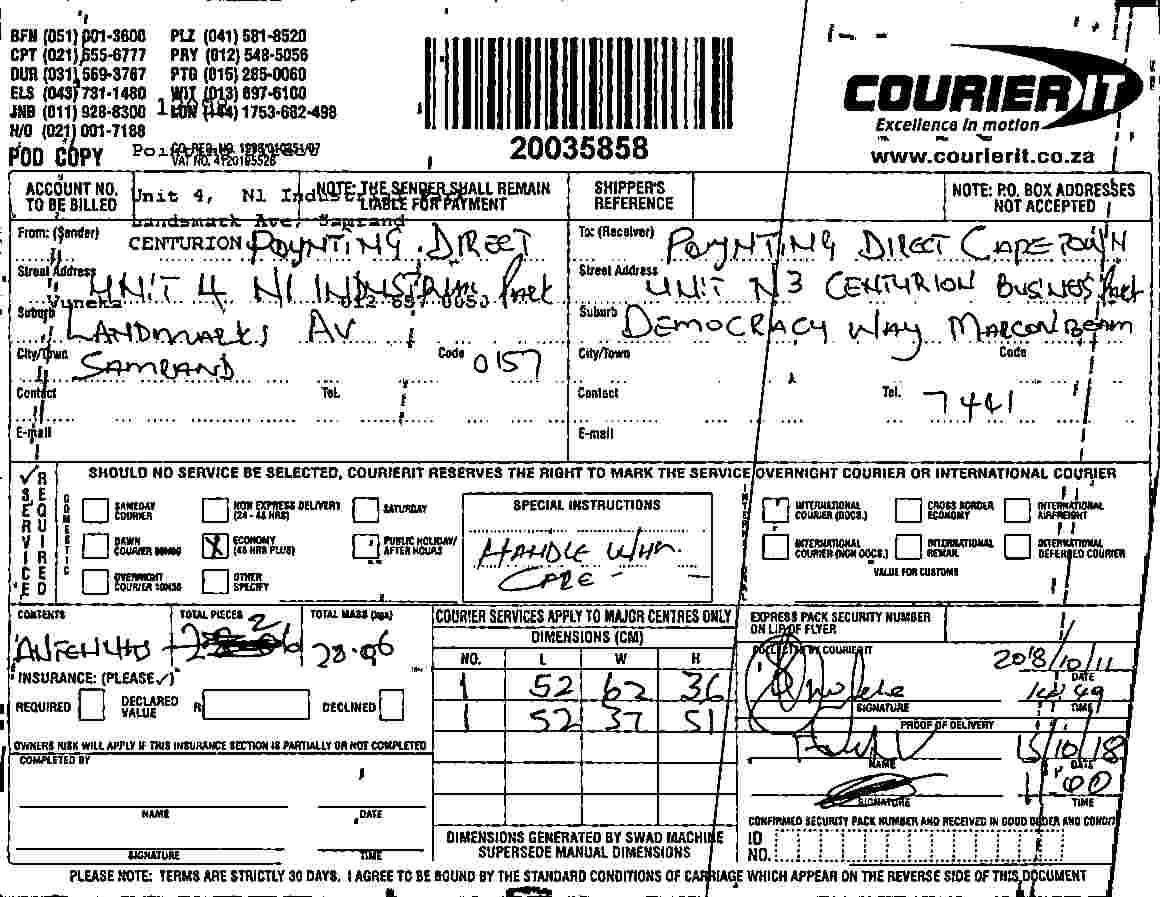 BFN (051) 001-3600 PLZ (041) 581-8520
CPT (021) 555-6777 PRY (012) 548-5056
DUR (031) 569-3767 PTG (015) 285-0060
ELS (043) 731-1480 WIT (013) 697-6100
JNB (011) 928-8300 LON (+44) 1753-682-498
H/O (021) 001-7188
POD COPY
CO REG. NO.
VAT NO. 4120195526
20035858
COURIERIT
Excellence in motion
www.courierit.co.za
ACCOUNT NO. TO BE BILLED
Unit 4, N1
Landsmark Ave, Samrand
CENTURION
NOTE: THE SENDER SHALL REMAIN LIABLE FOR PAYMENT
SHIPPER'S REFERENCE
NOTE: P.O. BOX ADDRESSES NOT ACCEPTED
From: (Sender) POYNTING DIRECT
Street Address UNIT 4 N1 INDUSTRIAL Park
Vuneka 012 657 0050
Suburb LANDMARKS AV
City/Town SAMRAND Code 0157
Contact Tel.
E-mail
To: (Receiver) POYNTING DIRECT CAPE TOWN
Street Address UNIT N3 CENTURION BUSINESS Park
Suburb DEMOCRACY WAY MARCONI BEAM
City/Town Code
Contact Tel. 7441
E-mail
SERVICE REQUIRED
SHOULD NO SERVICE BE SELECTED, COURIERIT RESERVES THE RIGHT TO MARK THE SERVICE OVERNIGHT COURIER OR INTERNATIONAL COURIER
DOMESTIC
SAMEDAY COURIER
NON EXPRESS DELIVERY (24 - 48 HRS)
SATURDAY
DAWN COURIER
X ECONOMY (48 HRS PLUS)
PUBLIC HOLIDAY/ AFTER HOURS
OVERNIGHT COURIER
OTHER SPECIFY
SPECIAL INSTRUCTIONS
HANDLE With
CARE -
INTERNATIONAL COURIER (DOCS.)
CROSS BORDER ECONOMY
INTERNATIONAL AIRFREIGHT
INTERNATIONAL COURIER (NON DOCS.)
INTERNATIONAL REMAIL
INTERNATIONAL DEFERRED COURIER
VALUE FOR CUSTOMS
CONTENTS TOTAL PIECES TOTAL MASS (kgs)
2 28.96
INSURANCE: (PLEASE ✓)
REQUIRED DECLARED VALUE R DECLINED
OWNERS RISK WILL APPLY IF THIS INSURANCE SECTION IS PARTIALLY OR NOT COMPLETED
COMPLETED BY
NAME DATE
SIGNATURE TIME
COURIER SERVICES APPLY TO MAJOR CENTRES ONLY
DIMENSIONS (CM)
NO. L W H
1 52 62 36
1 52 37 51
DIMENSIONS GENERATED BY SWAD MACHINE SUPERSEDE MANUAL DIMENSIONS
EXPRESS PACK SECURITY NUMBER ON LIP OF FLYER
COLLECTED BY COURIERIT
2018/10/11
DATE
14 49
SIGNATURE TIME
PROOF OF DELIVERY
15/10/18
NAME DATE
SIGNATURE TIME
CONFIRMED SECURITY PACK NUMBER AND RECEIVED IN GOOD ORDER AND CONDIT
ID NO.
PLEASE NOTE: TERMS ARE STRICTLY 30 DAYS, I AGREE TO BE BOUND BY THE STANDARD CONDITIONS OF CARRIAGE WHICH APPEAR ON THE REVERSE SIDE OF THIS DOCUMENT